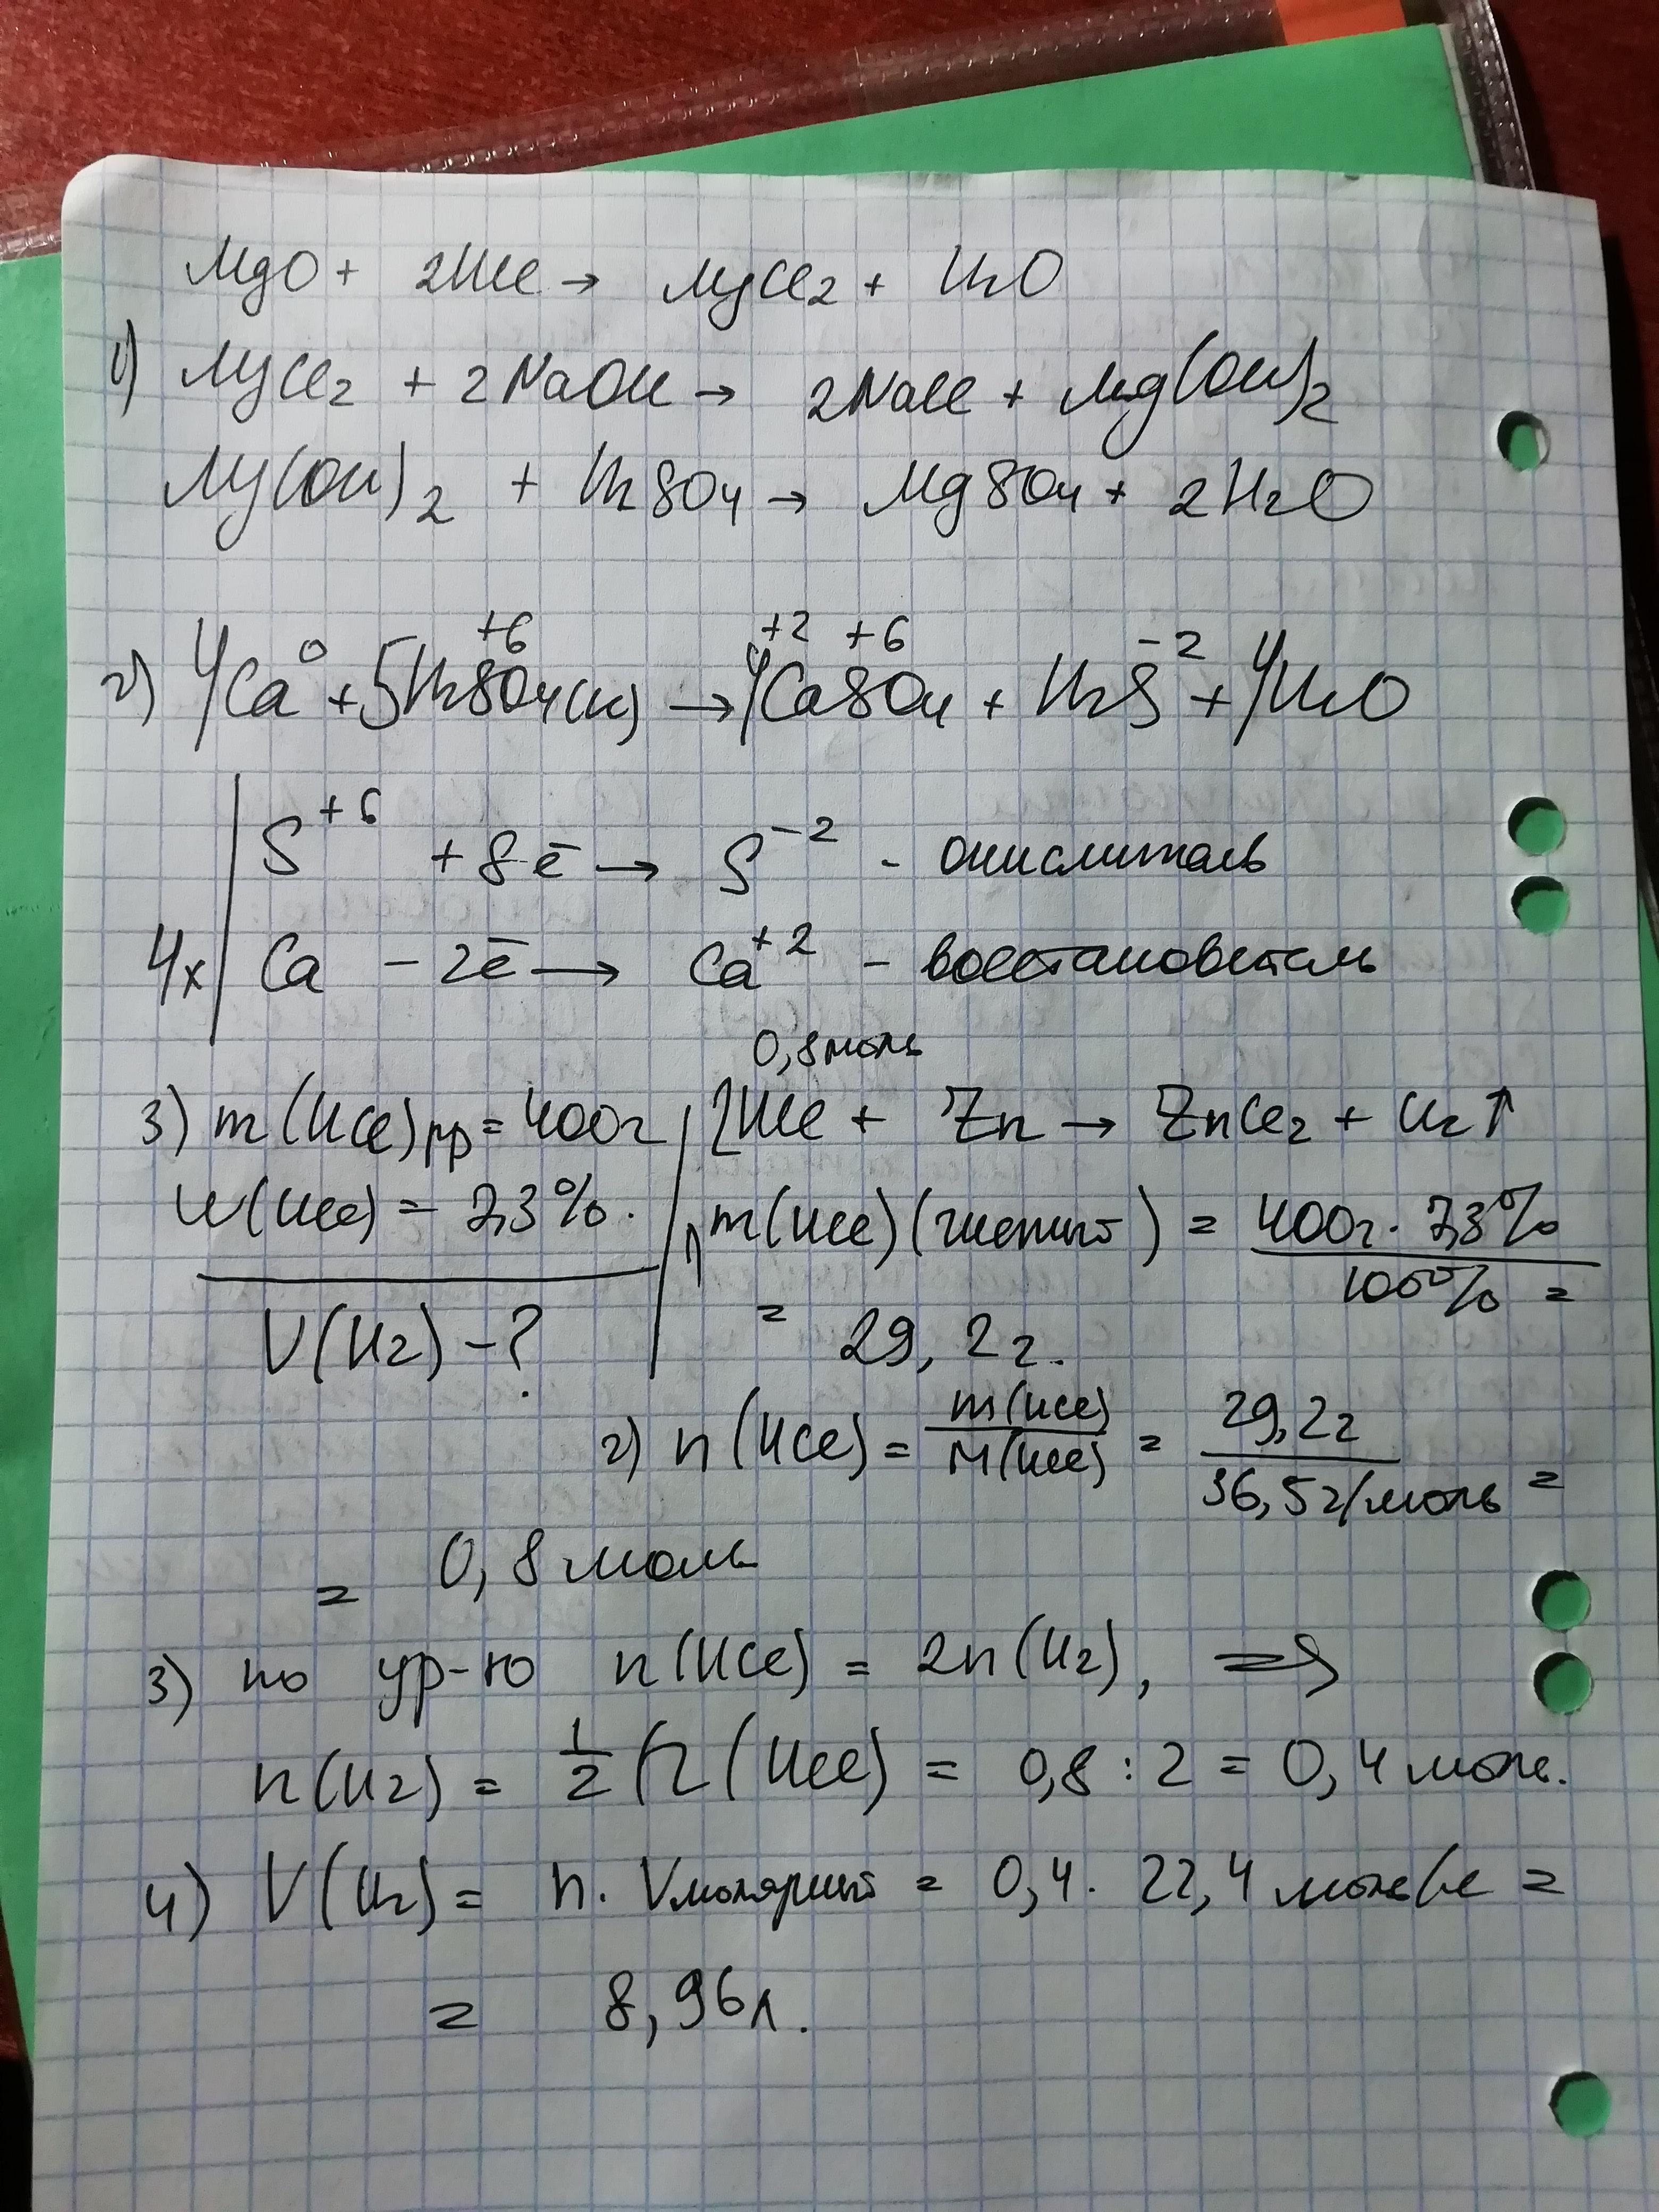 MgO + 2HCl → MgCl2 + H2O
1) MgCl2 + 2NaOH → 2NaCl + Mg(OH)2
Mg(OH)2 + H2SO4 → MgSO4 + 2H2O
0 +6 +2 +6 -2
2) 4Ca + 5H2SO4(к) → 4CaSO4 + H2S + 4H2O
S+6 + 8ē → S-2 - окислитель
4x Ca - 2ē → Ca+2 - восстановитель
0,8 моль
3) m(HCl)рр = 400г 2HCl + Zn → ZnCl2 + H2↑
w(HCl) = 7,3%. 1) m(HCl) = 400г · 7,3%
100% =
V(H2) - ? = 29,2г.
2) n(HCl) = m(HCl) / M(HCl) = 29,2г / 36,5г/моль =
= 0,8 моль
3) по ур-ю n(HCl) = 2n(H2), =>
n(H2) = 1/2 n(HCl) = 0,8 : 2 = 0,4 моль.
4) V(H2) = n · Vмолярный = 0,4 · 22,4 =
= 8,96л.